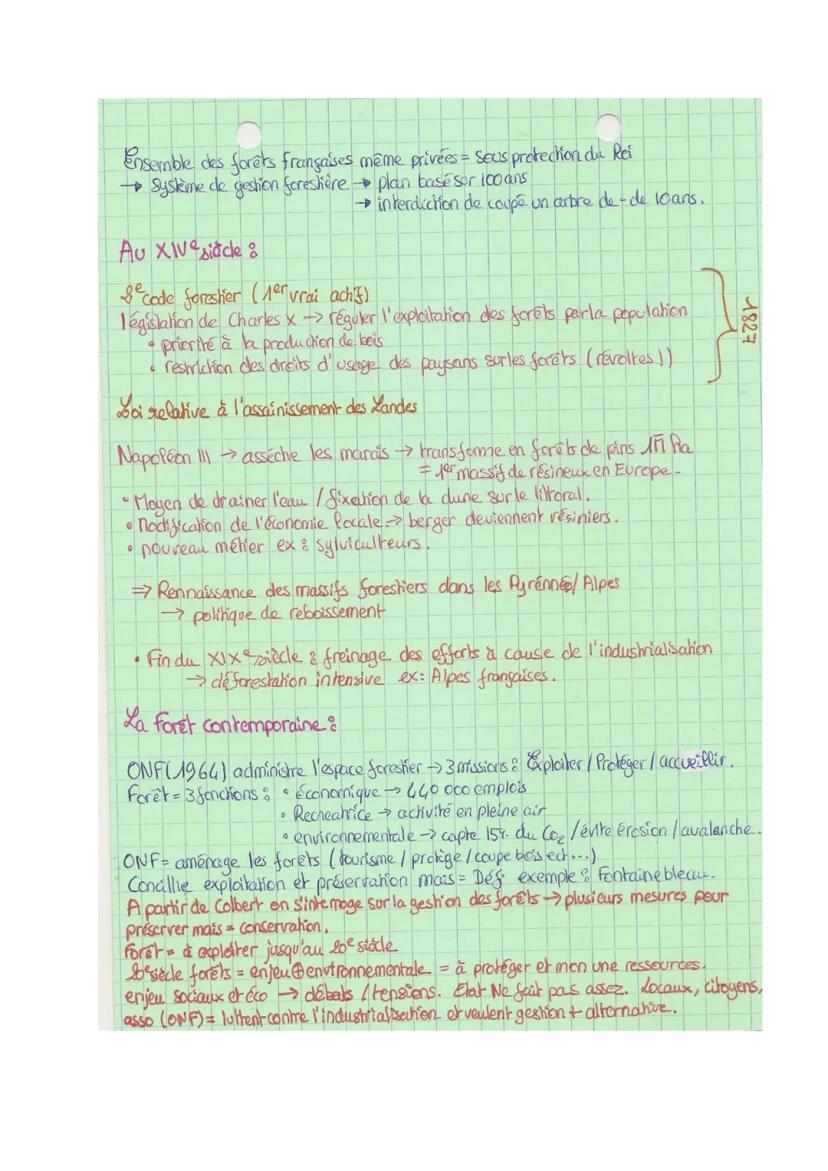 Ensemble des forêts françaises même privées = sous protection du Roi
→ Système de gestion forestière → plan basé sur 100 ans
→ interdiction de coupé un arbre de - de 10ans.
Au XIVe siècle :
code forestier (1er vrai actif)
législation de Charles X → réguler l'exploitation des forêts par la population
• priorité à la production de bois
• restriction des droits d'usage des paysans sur les forêts (révoltes !)
1827
Loi relative à l'assainissement des Landes
Napoléon III → assèche les marais → transforme en forêts de pins 1M ha
= 1er massif de résineux en Europe -
• Moyen de drainer l'eau / fixation de la dune sur le littoral.
• Modification de l'économie locale → berger deviennent résiniers.
• nouveau métier ex : sylviculteurs.
⇒ Rennaissance des massifs forestiers dans les Pyrénnée/ Alpes
→ politique de reboissement
• Fin du XIXe siècle : freinage des efforts à cause de l'industrialisation
→ déforestation intensive ex: Alpes françaises.
La forêt contemporaine :
ONF (1964) administre l'espace forestier → 3 missions : Exploiter / Protéger / accueillir.
Forêt = 3 fonctions : • économique → 440 000 emplois
• Recreatrice → activité en pleine air
• environnementale → capte 15% du CO2 / évite érosion / avalanche.
ONF = aménage les forêts (tourisme / protège / coupe bois ect...)
Concillie exploitation et préservation mais = Déf exemple : Fontainebleau.
A partir de Colbert on s'interroge sur la gestion des forêts → plusieurs mesures pour
préserver mais = conservation.
Forêt = à exploiter jusqu'au 20e siècle
20e siècle forêts = enjeu ⊕ environnementale = à protéger et non une ressources.
enjeu sociaux et éco → débats / tensions. Etat Ne fait pas assez. Locaux, citoyens,
asso (ONF) = luttent contre l'industrialisation et veulent gestion + alternative.